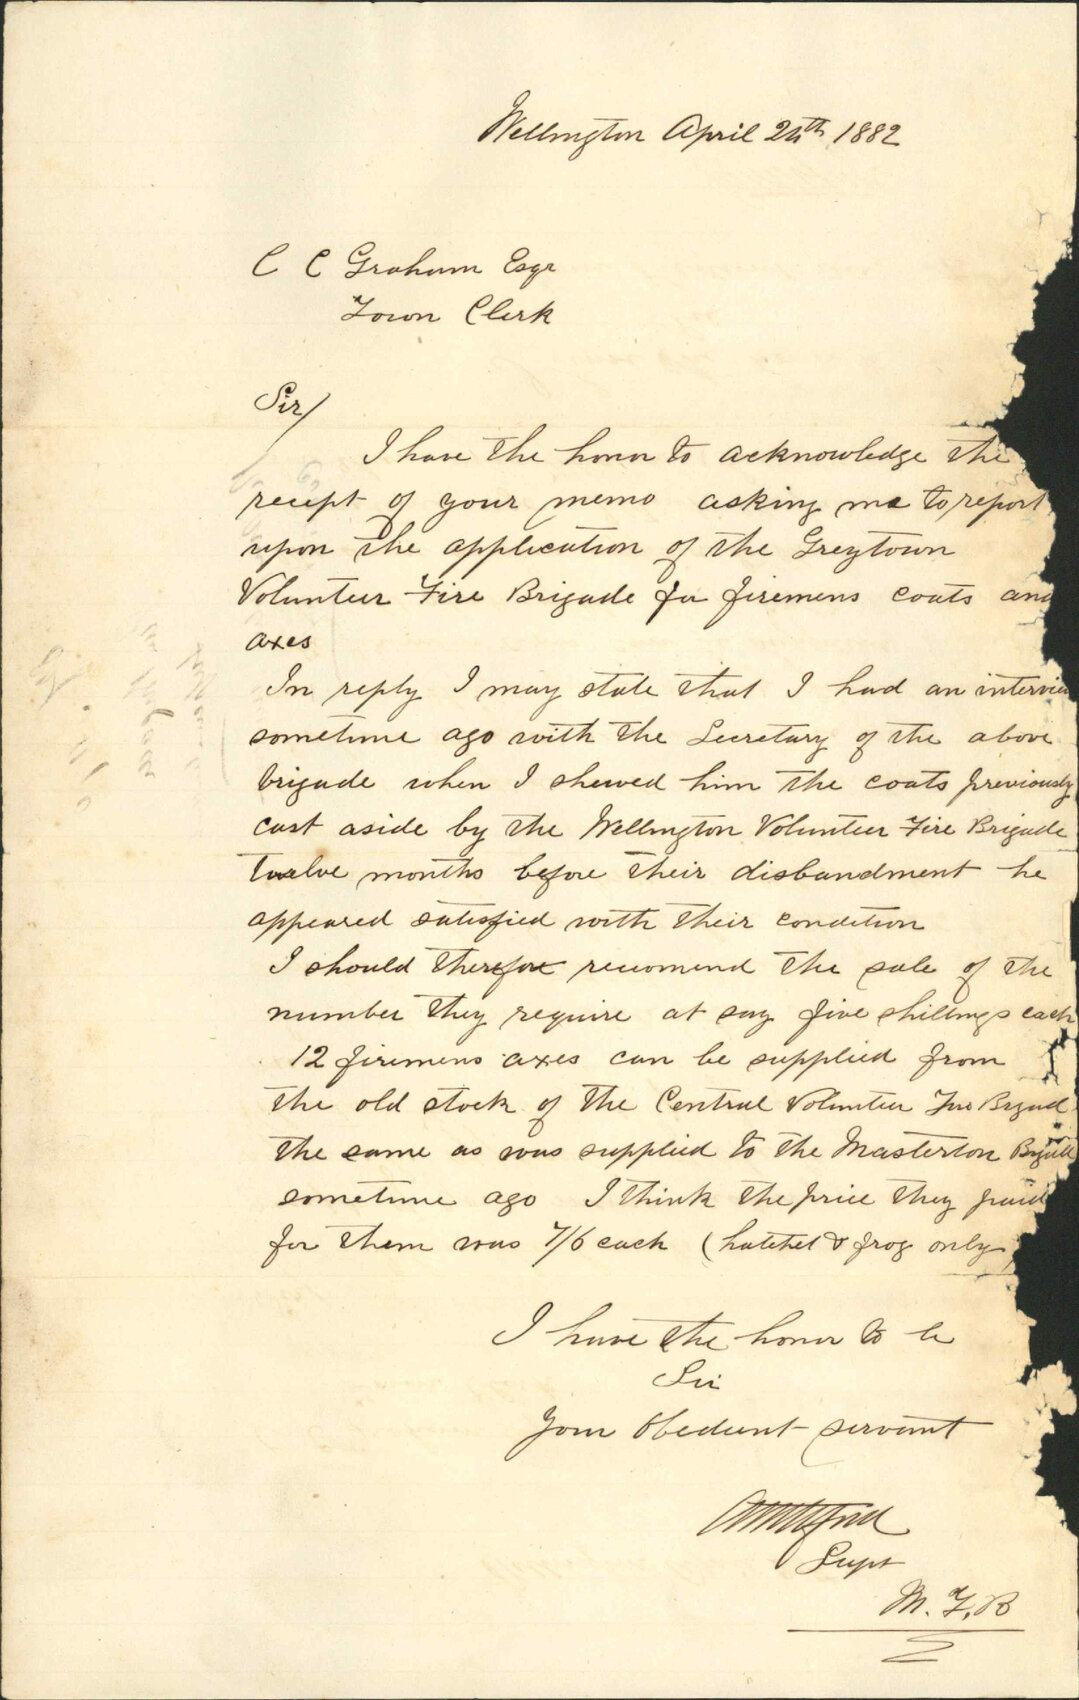 Wellington April 24th 1882
C C Graham Esqr
Town Clerk
Sir/
I have the honor to acknowledge the
receipt of your memo asking me to report
upon the application of the Greytown
Volunteer Fire Brigade for firemens coats and
axes
In reply I may state that I had an interview
sometime ago with the Secretary of the above
brigade when I shewed him the coats previously
cast aside by the Wellington Volunteer Fire Brigade
twelve months before their disbandment he
appeared satisfied with their condition
I should therefore recomend the sale of the
number they require at say five shillings each
12 firemens axes can be supplied from
the old stock of the Central Volunteer Fire Brigade
the same as was supplied to the Masterton Brigade
sometime ago I think the price they paid
for them was 7/6 each (hatchet & frog only)
I have the honor to be
Sir
Your Obedient servant
Supt
M. F. B